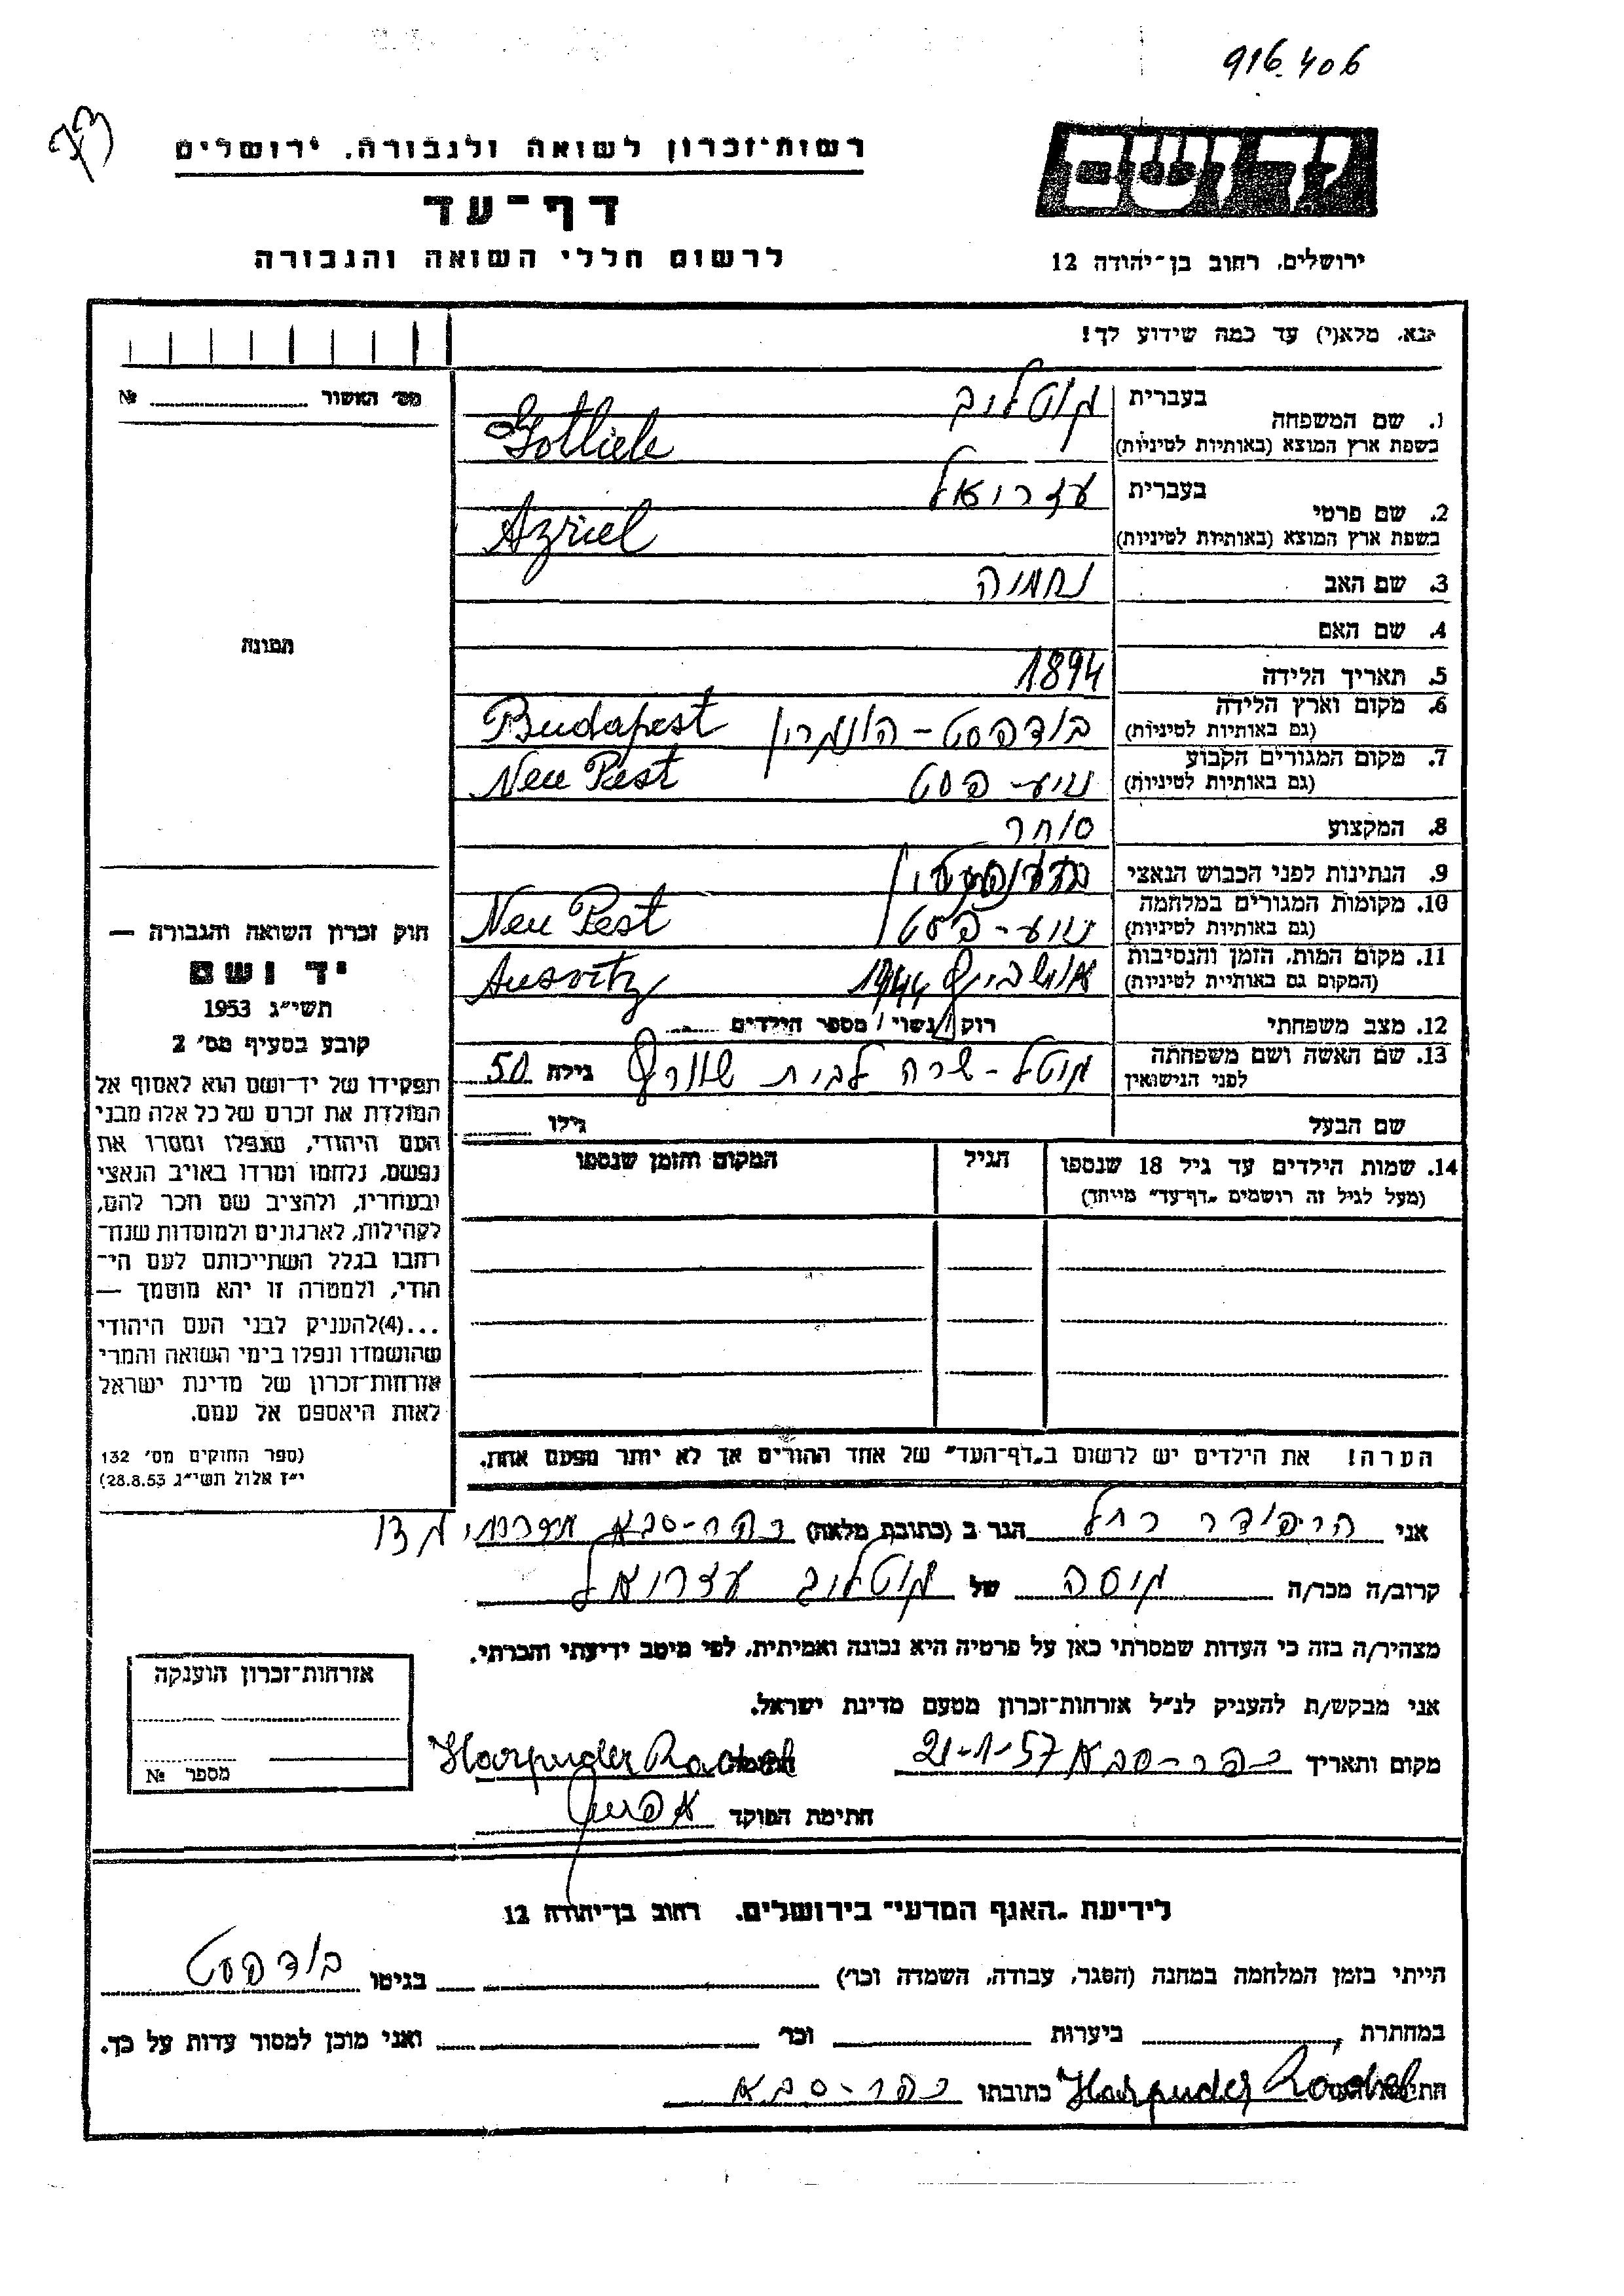 916.406
73
רשות־זכרון לשואה ולגבורה, ירושלים
דף־עד
לרשום חללי השואה והגבורה
ידושם
ירושלים, רחוב בן־יהודה 12
נא, מלא(י) עד כמה שידוע לך!
מס' האשור №
תמונה
1. שם המשפחה בעברית גוטליב
בשפת ארץ המוצא (באותיות לטיניות) Gotlieb
2. שם פרטי בעברית עזריאל
בשפת ארץ המוצא (באותיות לטיניות) Azriel
3. שם האב נחמיה
4. שם האם
5. תאריך הלידה 1894
6. מקום וארץ הלידה (גם באותיות לטיניות) בודפסט - הונגריה Budapest
7. מקום המגורים הקבוע (גם באותיות לטיניות) נוע - פסט Neu Pest
8. המקצוע סוחר
9. הנתינות לפני הכבוש הנאצי
10. מקומות המגורים במלחמה (גם באותיות לטיניות) נוע - פסט Neu Pest
11. מקום המות, הזמן והנסיבות (המקום גם באותיית לטיניות) אושביץ 1944 Ausvitz
12. מצב משפחתי רוק / נשוי / מספר הילדים
13. שם האשה ושם משפחתה לפני הנישואין גוטל - שרה לבית שוורץ גילה 50
שם הבעל גילו
14. שמות הילדים עד גיל 18 שנספו הגיל המקום והזמן שנספו
(מעל לגיל זה רושמים „דף־עד” מיוחד)
הערה! את הילדים יש לרשום ב„דף־העד” של אחד ההורים אך לא יותר מפעם אחת.
חוק זכרון השואה והגבורה —
יד ושם
תשי״ג 1953
קובע בסעיף מס' 2
תפקידו של יד־ושם הוא לאסוף אל
המולדת את זכרם של כל אלה מבני
העם היהודי, שנפלו ומסרו את
נפשם, נלחמו ומרדו באויב הנאצי
ובעוזריו, ולהציב שם וזכר להם,
לקהילות, לארגונים ולמוסדות שנח־
רבו בגלל השתייכותם לעם הי־
הודי, ולמטרה זו יהא מוסמך —
...(4)להעניק לבני העם היהודי
שהושמדו ונפלו בימי השואה והמרי
אזרחות־זכרון של מדינת ישראל
לאות היאספם אל עמם.
(ספר החוקים מס' 132
י״ז אלול תשי״ג 28.8.53)
אני הרפודר רחל הגר ב (כתובת מלאה) כפר-סבא
קרוב/ה מכר/ה גיסה של גוטליב עזריאל
מצהיר/ה בזה כי העדות שמסרתי כאן על פרטיה היא נכונה ואמיתית, לפי מיטב ידיעתי והכרתי.
אני מבקש/ת להעניק לנ״ל אזרחות־זכרון מטעם מדינת ישראל.
מקום ותאריך כפר-סבא 21-1-57 חתימה Harpuder Rachel
חתימת הפוקד
אזרחות־זכרון הוענקה
מספר №
לידיעת „האגף המדעי” בירושלים, רחוב בן־יהודה 12
הייתי בזמן המלחמה במחנה (הסגר, עבודה, השמדה וכו') בגיטו בודפעסט
במחתרת ביערות וכו' ואני מוכן למסור עדות על כך.
Harpuder Rachel כתובתו כפר-סבא